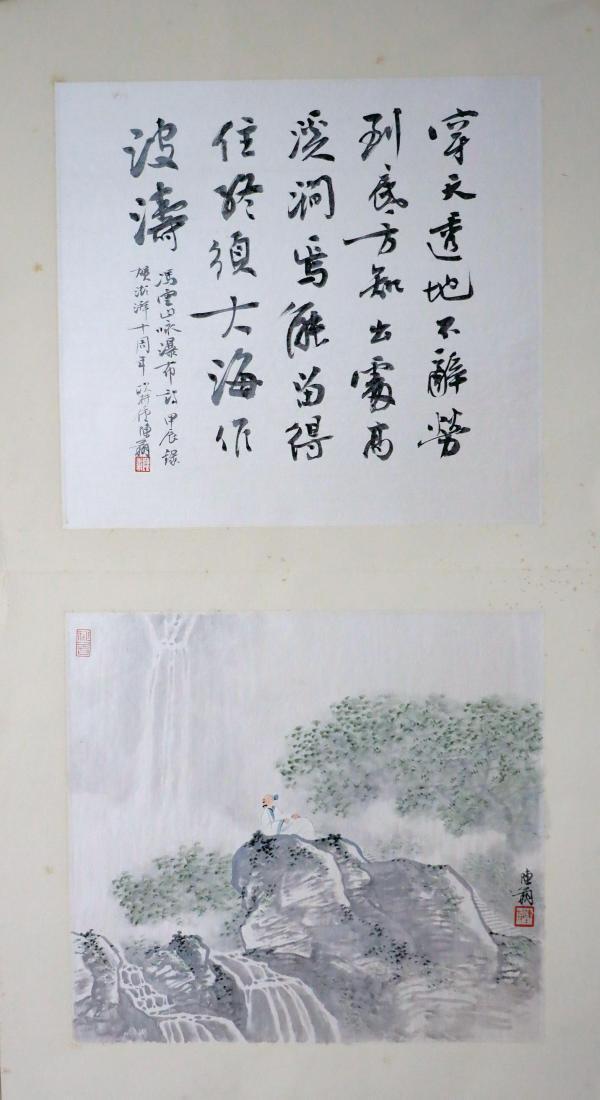 穿天透地不辭勞
到底方知出處高
溪澗焉能留得
住終須大海作
波濤
馮雲山詠瀑布詩 甲辰錄
十周年
陳
陳